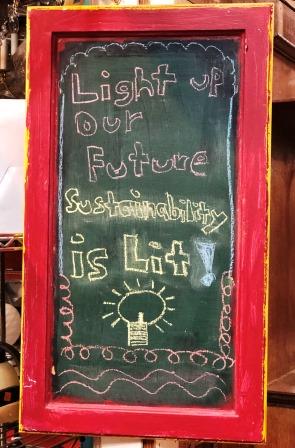 Light up
our
Future
Sustainability
is Lit!